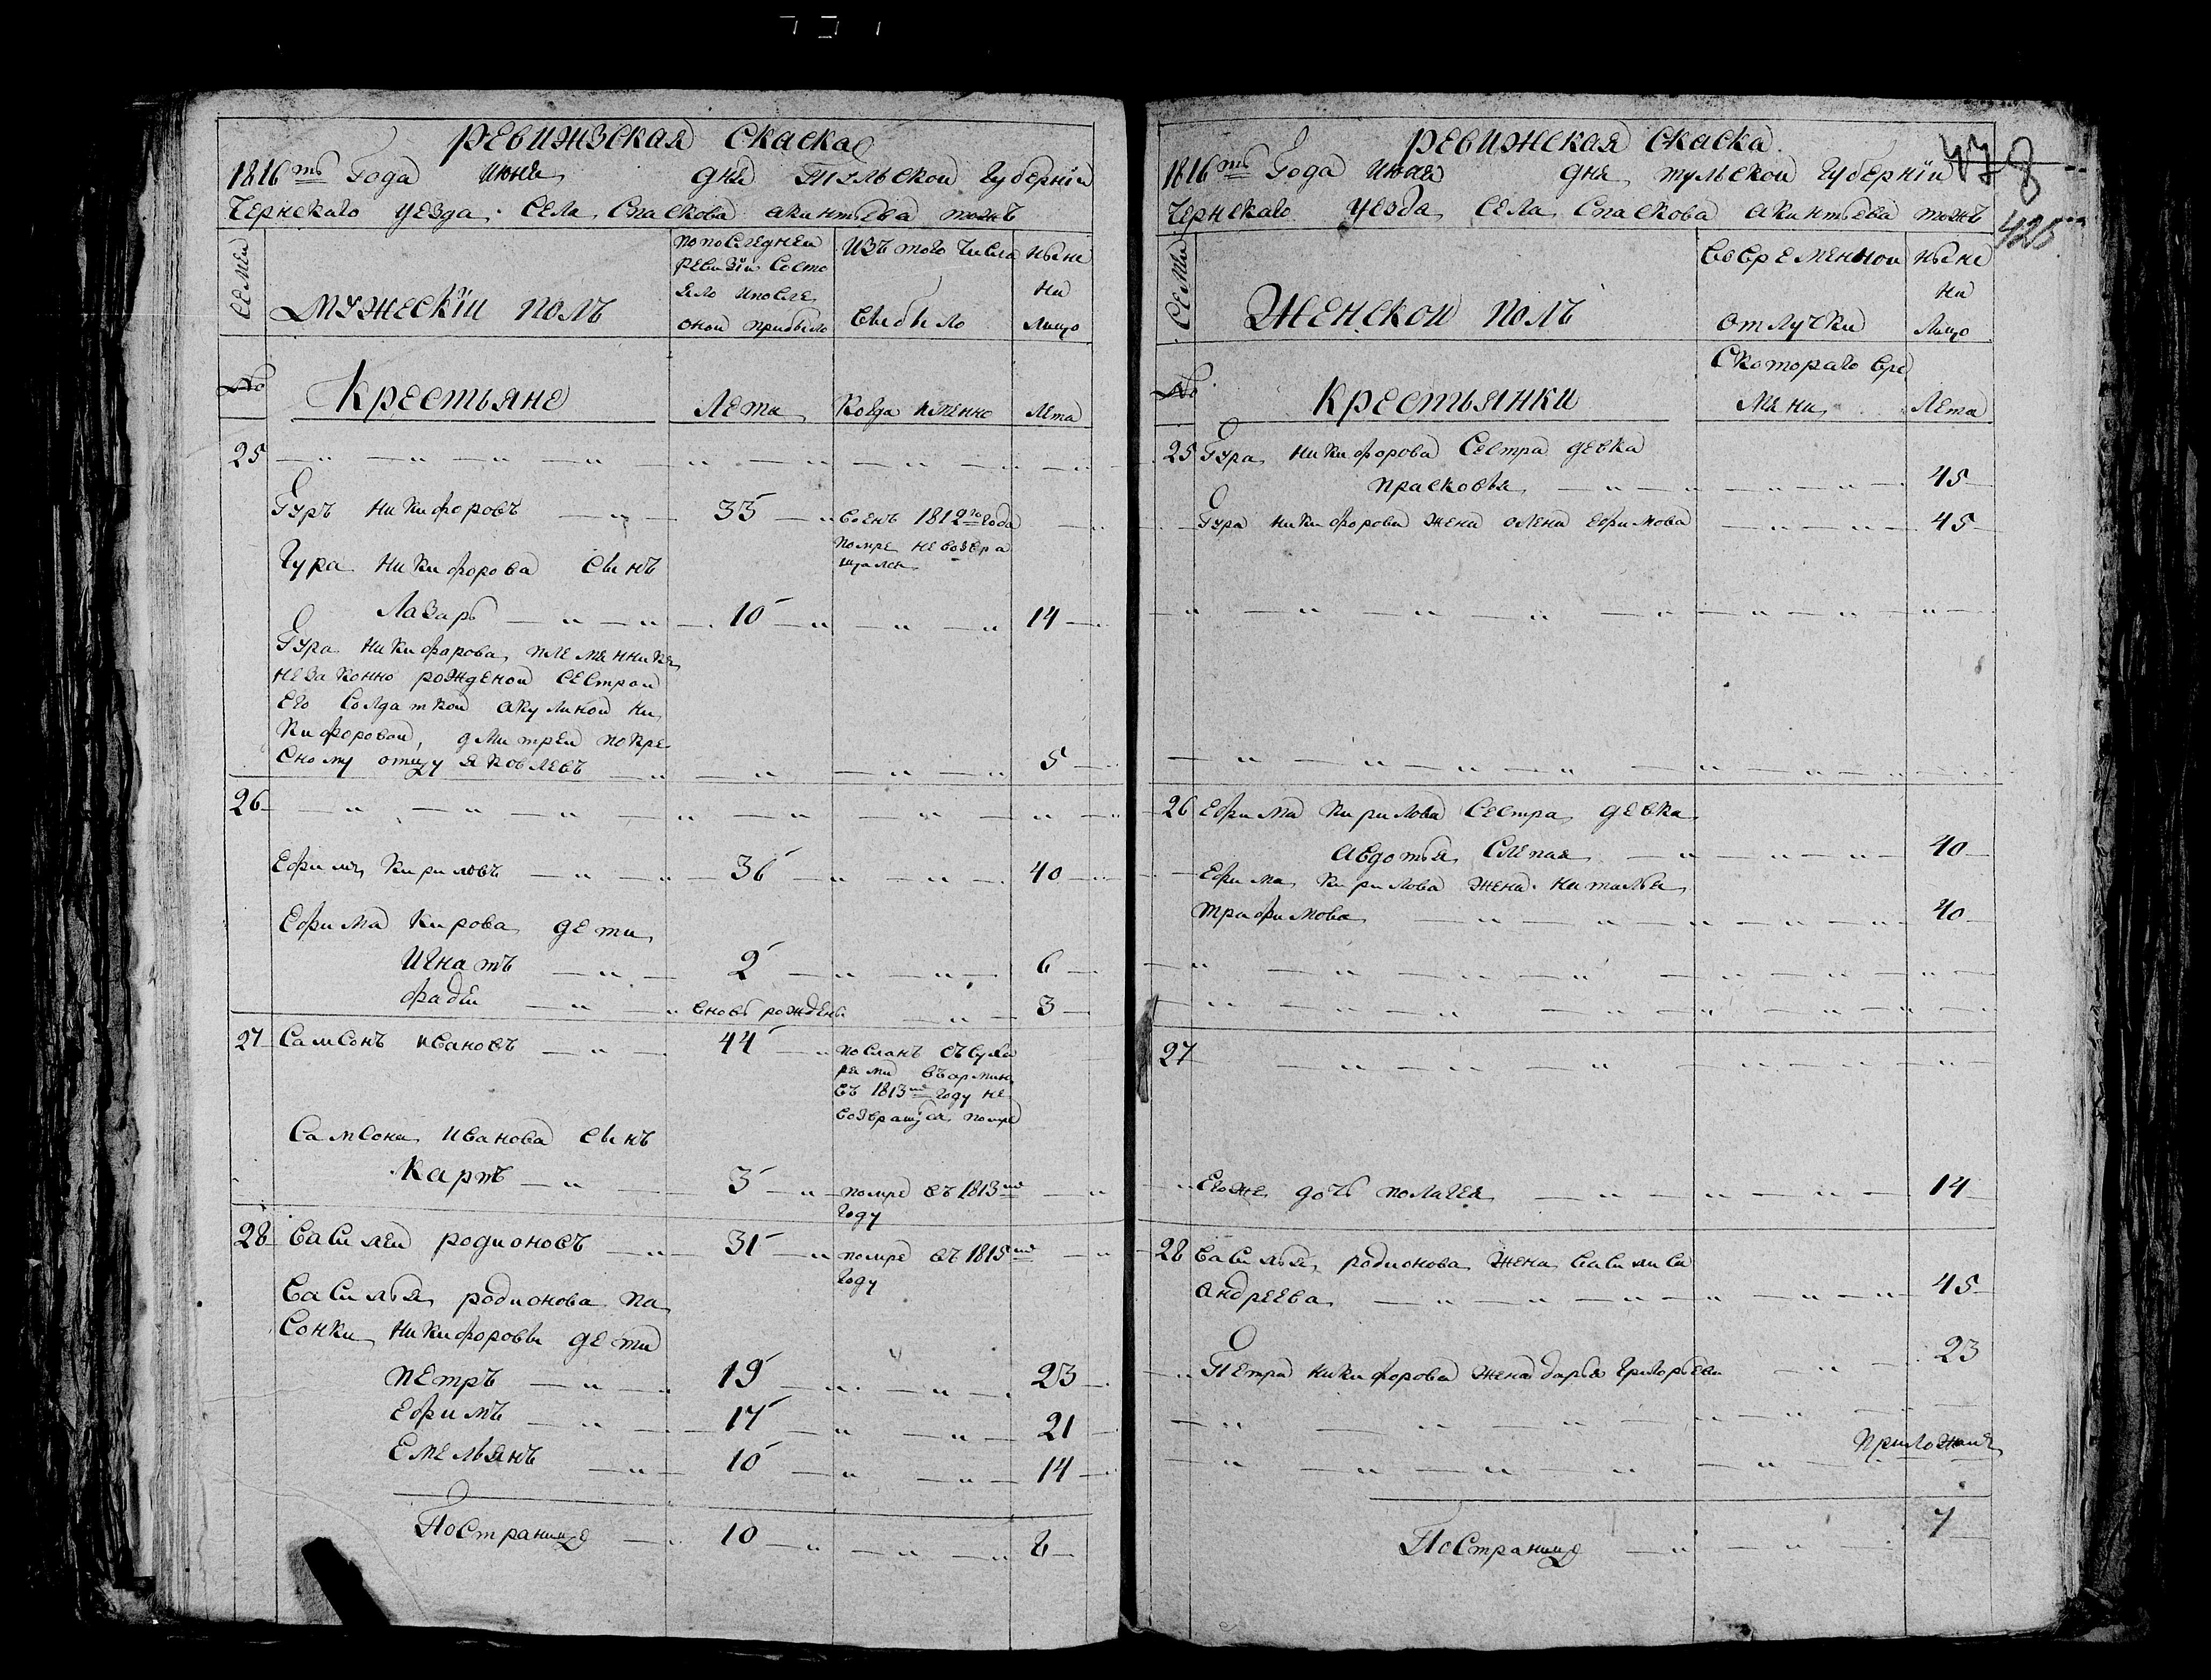 ревижзская скаска
1816ть года июня дня тульской губернїи
чернскаго уезда села спаскова акинтьева тожъ
семьи
мужескїи полъ
попоследнеи ревизїи состояло ипосле оной прибыло
изъ того числа выбыло
ныне на лицо
№
крестьяне
лета
когда имянно
лета
25
гуръ никифоровъ 35 военъ 1812го года
помре невозвращален
гура никифорова сынъ
лазарь 10 14
гура никифарова племянникъ
незаконно рожденой сестрой
его солдаткой акулиной ни
кифоровой, дмитрей покре
сному отцу яковлевъ 5
26
ефимъ кириловъ 36 40
ефима кирова дети
игнатъ 2 6
фадеи вновь рожденъ 3
27 самсонъ ивановъ 44 посланъ съсуха
рями въармию
въ 1813м году не
возвращася помре
самсона иванова сынъ
карпъ 3 помре въ 1813м
году
28 василеи родионовъ 31 помре въ 1815м
году
василья родионова па
сонки никифоровы дети
петръ 19 23
ефимъ 17 21
емельянъ 10 14
постранице 10 8
478
426
ревижская скаска
1816ть года июня дня тульской губернїи
чернскаго уезда села спаскова акинтьева тожъ
семьи
женской полъ
вовременной отлучки
ныне на лицо
№
крестьянки
скотораго вре
мяни
лета
25 гура никифорова сестра девка
прасковья 45
гура никифорова жена олена ефимова 45
26 ефима кирилова сестра девка
авдотья слепая 40
ефима кирилова жена наталья
трифимова 40
27
егоже дочь полагея 14
28 василья родионова жена василиса
андреева 45
петра никифорова жена дарья григорьева 23
приложилъ
постранице 7